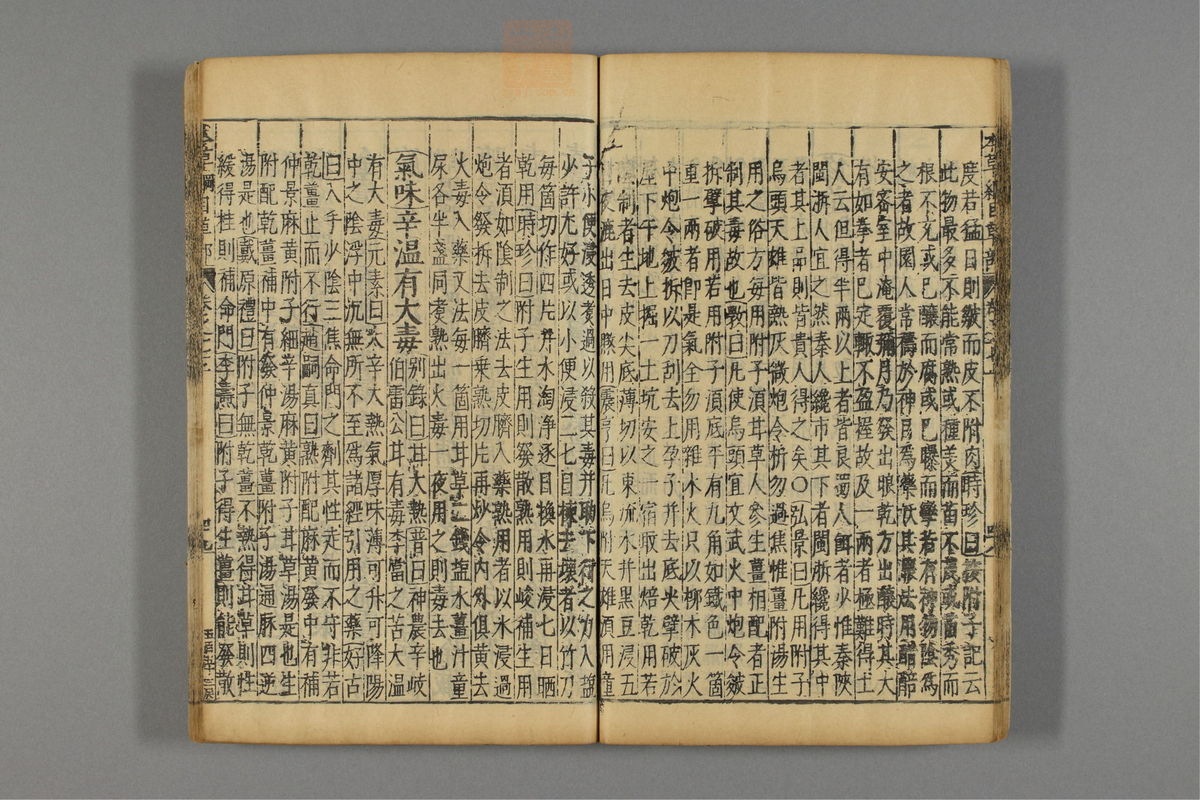 度若猛日則皺而皮不附肉時珍曰按附子記云
此物最多不能常熟或種美而苗不茂或苗秀而
根不充或已釀而腐或已曝而攣若有神物陰爲
之者故園人常禱於神目爲藥妖其釀法用醋醅
安密室中淹覆彌月乃發出晾乾方出釀時其大
有如拳者已定輒不盈握故及一兩者極難得土
人云但得半兩以上者皆良蜀人餌者少惟秦陝
閩浙人宜之然秦人纔市其下者閩浙纔得其中
者其上品則皆貴人得之矣〇弘景曰凡用附子
烏頭天雄皆熱灰微炮令拆勿過焦惟薑附湯生
用之俗方每用附子須甘草人參生薑相配者正
制其毒故也斅曰凡使烏頭宜文武火中炮令皺
拆擘破用若用附子須底平有九角如鐵色一箇
重一兩者即是氣全勿用雜木火只以柳木灰火
中炮令皺拆以刀刮去上孕子并去底尖擘破於
屋下平地上掘一土坑安之一宿取出焙乾用若
制者生去皮尖底薄切以東流水并黑豆浸五
夜漉出日中曬用震亨曰凡烏附天雄須用童
子小便浸透煮過以殺其毒并助下行之力入鹽
少許尤好或以小便浸二七日揀去壞者以竹刀
每箇切作四片井水淘淨逐日換水再浸七日晒
乾用時珍曰附子生用則發散熟用則峻補生用
者須如陰制之法去皮臍入藥熟用者以水浸過
炮令發拆去皮臍乗熱切片再炒令內外俱黄去
火毒入藥又法每一箇用甘草二錢鹽水薑汁童
尿各半盞同煮熟出火毒一夜用之則毒去也
氣味辛溫有大毒 別錄曰甘大熱普曰神農辛岐
伯雷公甘有毒李當之苦大溫
有大毒元素曰大辛大熱氣厚味薄可升可降陽
中之陰浮中沉無所不至爲諸經引用之藥好古
曰入手少陰三焦命門之劑其性走而不守非若
乾薑止而不行趙嗣真曰熟附配麻黄發中有補
仲景麻黄附子細辛湯麻黄附子甘草湯是也生
附配乾薑補中有發仲景乾薑附子湯通脉四逆
湯是也戴原禮曰附子無乾薑不熱得甘草則性
緩得桂則補命門李燾曰附子得生薑則能發散